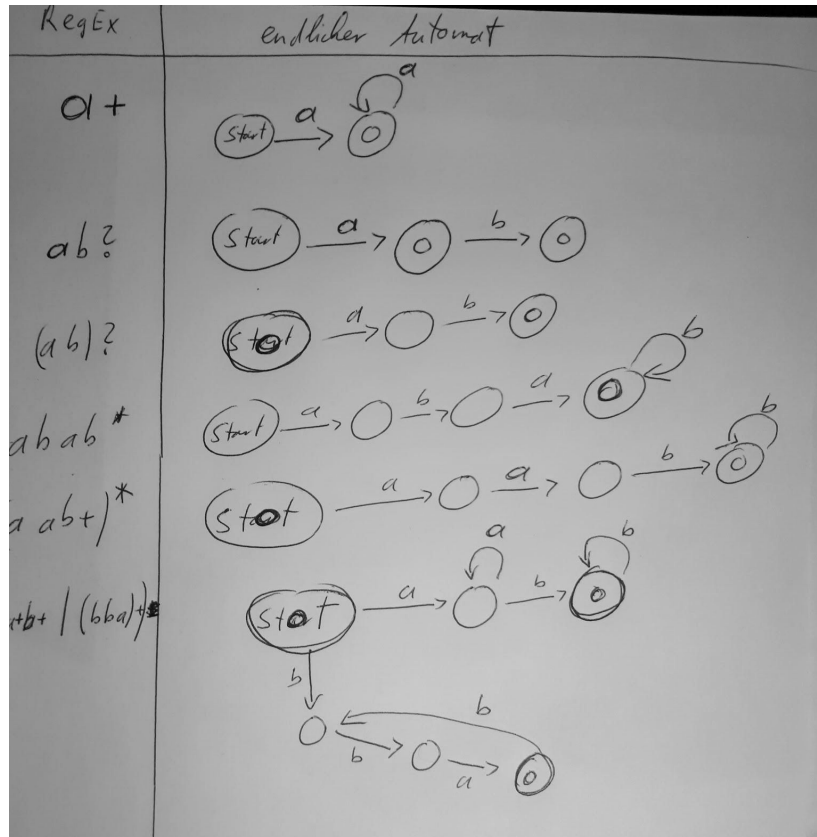 RegEx endlicher Automat
a+ Start a a
ab? Start a b
(ab)? Start a b
abab* Start a b a b
a ab+)* Start a a b b
+b+ | (bba)+ Start a a b b
b
b b a